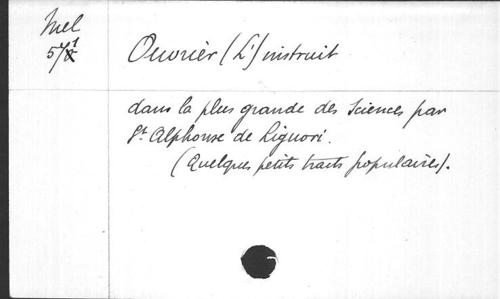 Mel
57
Ouvrier (L') instruit
dans la plus grande des Sciences par
St. Alphonse de Liguori.
(Quelques petits tracts populaires).